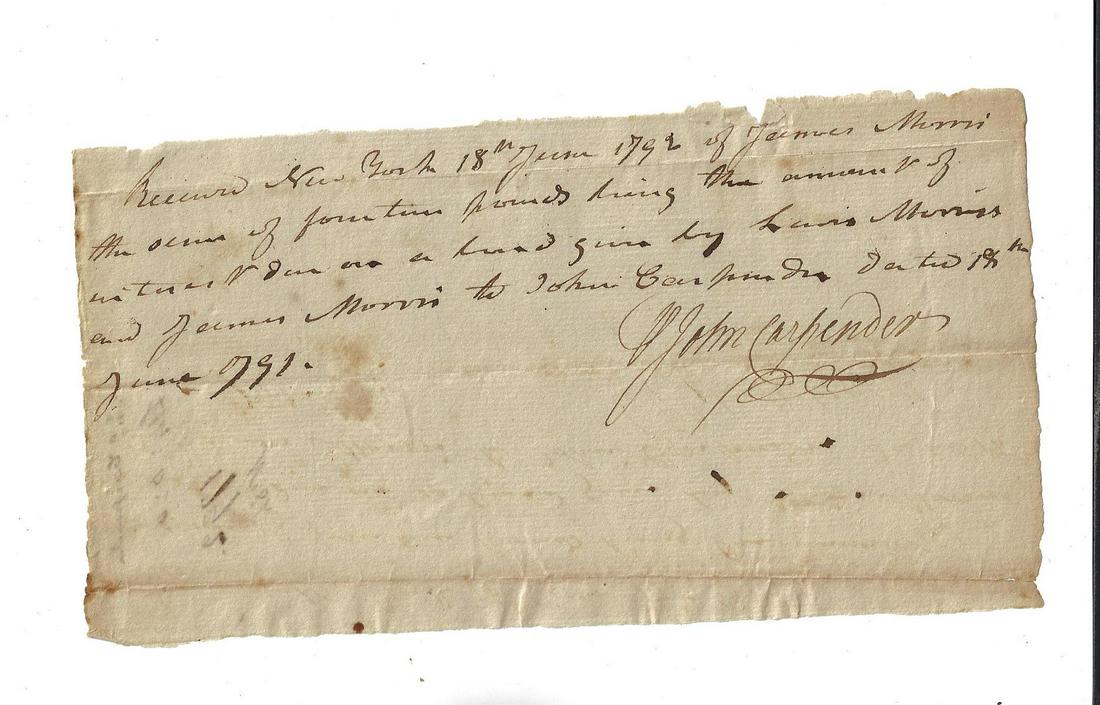 Received New York 18th June 1792 of James Morris
the sum of fourteen pounds being the amount of
interest due on a bond given by Lewis Morris
and James Morris to John Carpender dated 18th
June 1791.
John Carpender